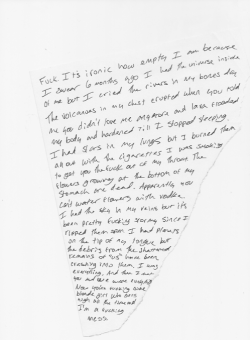 Fuck It's ironic how empty I am because
I swear 6 months ago I had the universe inside
of me but I cried the rivers in my bones dry
The volcanoes in my chest erupted when you told
me you didn't love me anymore and lava flooded
my body and hardened till I stopped sleeping
I had stars in my lungs but I burned them
all out with the cigarettes I was smoking
to get you the fuck out of my throat The
flowers growing at the bottom of my
stomach are dead. Apparently you
can't water flowers with vodka
I had the sky in my veins but its
been pretty fucking stormy since I
ripped them open I had planets
on the tip of my tongue but
the debris from the shattered
remains of "us" have been
crashing into them. I was
everything. And then I met
you and we were
Now you're fucking some
blonde girl who
high all the time and
I'm a fucking
mess